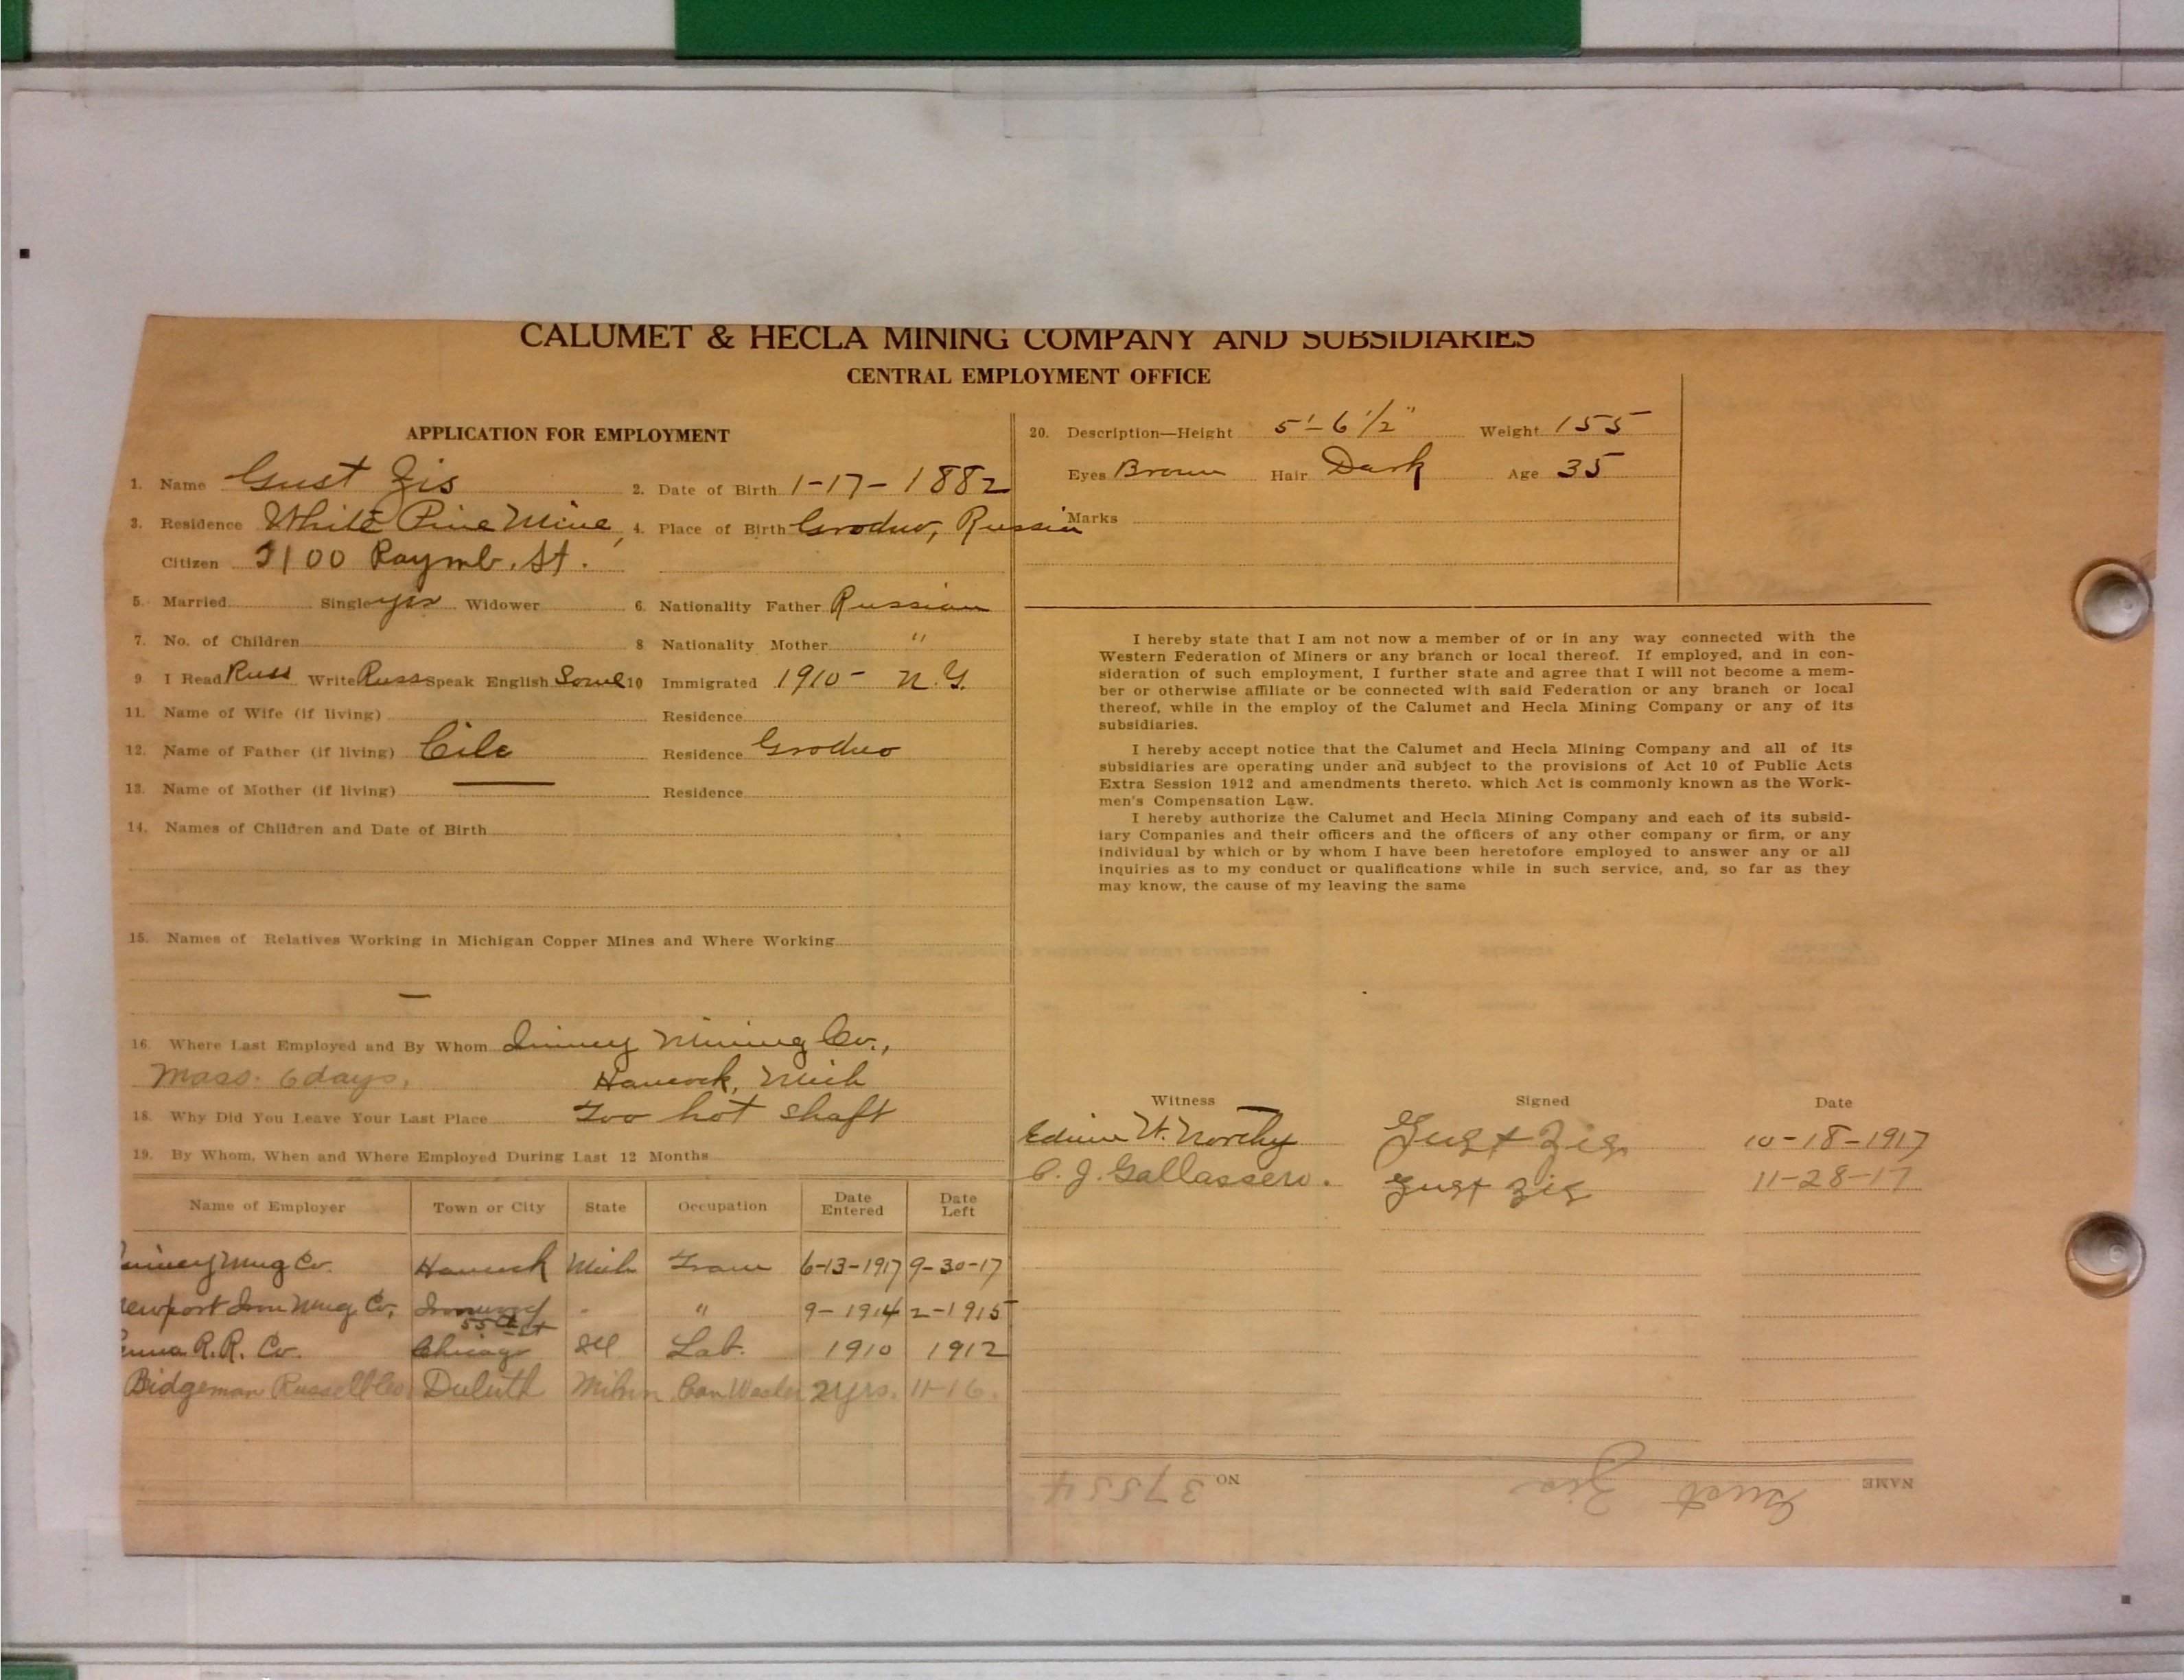 CALUMET & HECLA MINING COMPANY AND SUBSIDIARIES
CENTRAL EMPLOYMENT OFFICE
APPLICATION FOR EMPLOYMENT
1. Name Gust Zis 2. Date of Birth 1-17-1882
3. Residence White Pine Mine, 4. Place of Birth Grodno, Russia
Citizen 2100 Raymb. St.
5. Married Single yes Widower 6. Nationality Father Russian
7. No. of Children 8 Nationality Mother "
9 I Read Russ Write Russ Speak English Some 10 Immigrated 1910- N.Y.
11. Name of Wife (if living) Residence
12. Name of Father (if living) Residence Grodno
13. Name of Mother (if living) — Residence
14. Names of Children and Date of Birth
15. Names of Relatives Working in Michigan Copper Mines and Where Working
—
16. Where Last Employed and By Whom Quincy Mining Co.,
Mass. 6 days, Hancock, Mich
18. Why Did You Leave Your Last Place Too hot shaft
19. By Whom, When and Where Employed During Last 12 Months
Name of Employer Town or City State Occupation Date Entered Date Left
Quincy Mng Co. Hancock Mich Tram 6-13-1917 9-30-17
Newport Iron Mng Co. Ironwood " " 9-1914 2-1915
55th St
R.R. Co. Chicago Ill Lab. 1910 1912
Bidgeman Russell Co Duluth Minn Can Washer 2 yrs. 11-16.
20. Description—Height 5'-6 1/2" Weight 155
Eyes Brown Hair Dark Age 35
Marks
I hereby state that I am not now a member of or in any way connected with the
Western Federation of Miners or any branch or local thereof. If employed, and in con-
sideration of such employment, I further state and agree that I will not become a mem-
ber or otherwise affiliate or be connected with said Federation or any branch or local
thereof, while in the employ of the Calumet and Hecla Mining Company or any of its
subsidiaries.
I hereby accept notice that the Calumet and Hecla Mining Company and all of its
subsidiaries are operating under and subject to the provisions of Act 10 of Public Acts
Extra Session 1912 and amendments thereto. which Act is commonly known as the Work-
men's Compensation Law.
I hereby authorize the Calumet and Hecla Mining Company and each of its subsid-
iary Companies and their officers and the officers of any other company or firm, or any
individual by which or by whom I have been heretofore employed to answer any or all
inquiries as to my conduct or qualifications while in such service, and, so far as they
may know, the cause of my leaving the same
Witness Signed Date
W. Gust Zis 10-18-1917
C. J. Gallassero. Gust Zis 11-28-17
NAME Gust Zis NO 37554